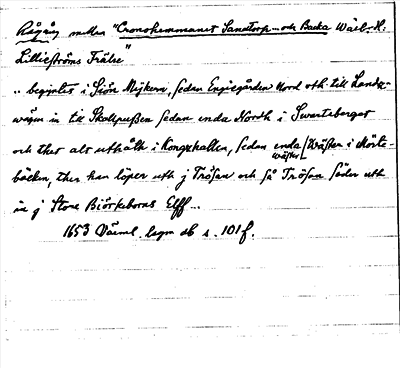 Rågång mellan "Cronohemmanet Sandtorp och Backa Wälb. H.
Lillieströms Frälse"
.. begintes i Siön Mijkern, sedan Engiegården Nord uth till Landz-
wägen in till Skallpußen sedan enda North i Swarteberget
och ther alt uthåth i Kongzkallen, sedan enda Wästen i Mörte-
wäster
bäcken, ther han löper uth j Tröfan och så Tröfan Söder utt
in j Store Biörkeborns Elff...
1653 Värml. lagm db s. 101f.